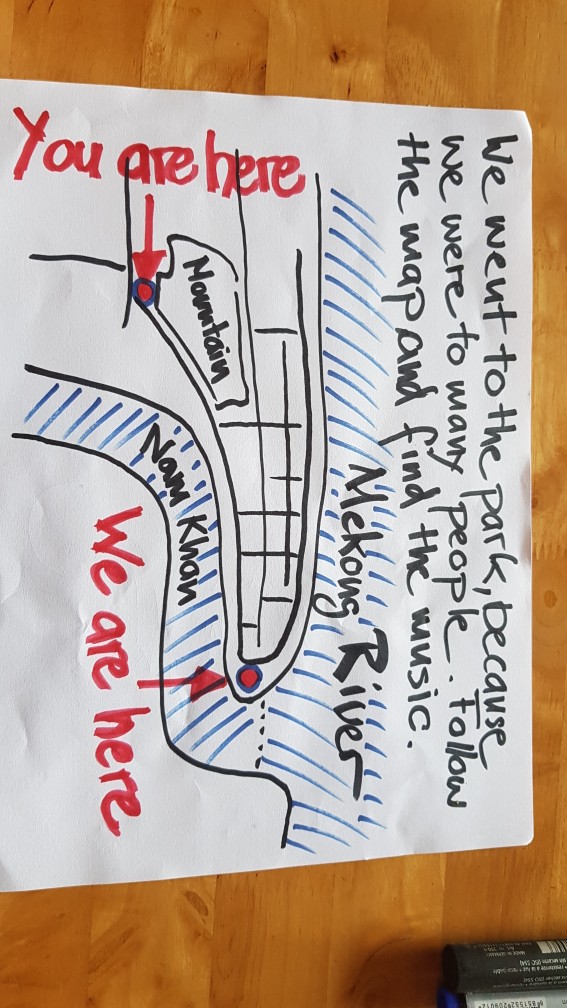 We went to the park, because
we were to many people. Follow
the map and find the music.
Mekong River
You are here
Mountain
Nam Khan
We are here